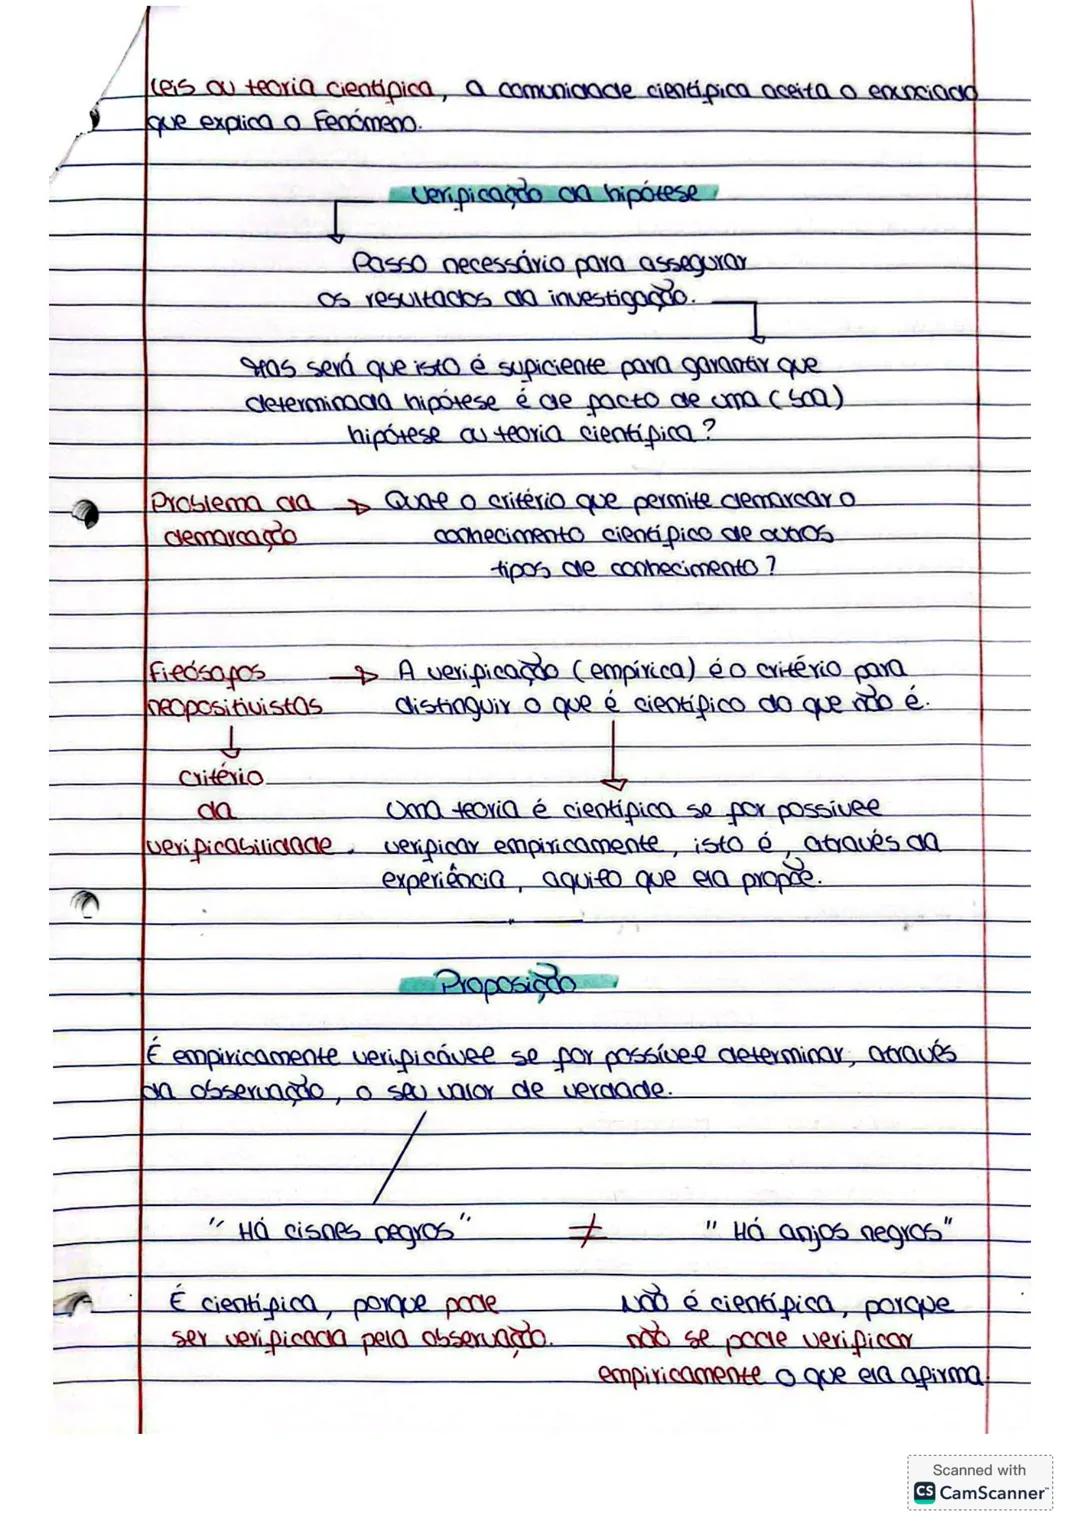 leis ou teoria científica, a comunidade científica aceita o enunciado
que explica o Fenómeno.
Verificação da hipótese
Passo necessário para assegurar
os resultados da investigação.
Mas será que isto é suficiente para garantir que
determinada hipótese é de facto de uma (boa)
hipótese ou teoria científica?
Problema da → Qual o critério que permite demarcar o
demarcação conhecimento científico de outros
tipos de conhecimento?
Filósofos → A verificação (empírica) é o critério para
neopositivistas distinguir o que é científico do que não é.
critério
da Uma teoria é científica se for possível
verificabilidade. verificar empiricamente, isto é, através da
experiência, aquilo que ela propõe.
Proposição
É empiricamente verificável se for possível determinar, através
da observação, o seu valor de verdade.
"Há cisnes negros" ≠ "Há anjos negros"
É científica, porque pode Não é científica, porque
ser verificada pela observação. não se pode verificar
empiricamente o que ela afirma.
Scanned with
CS CamScanner